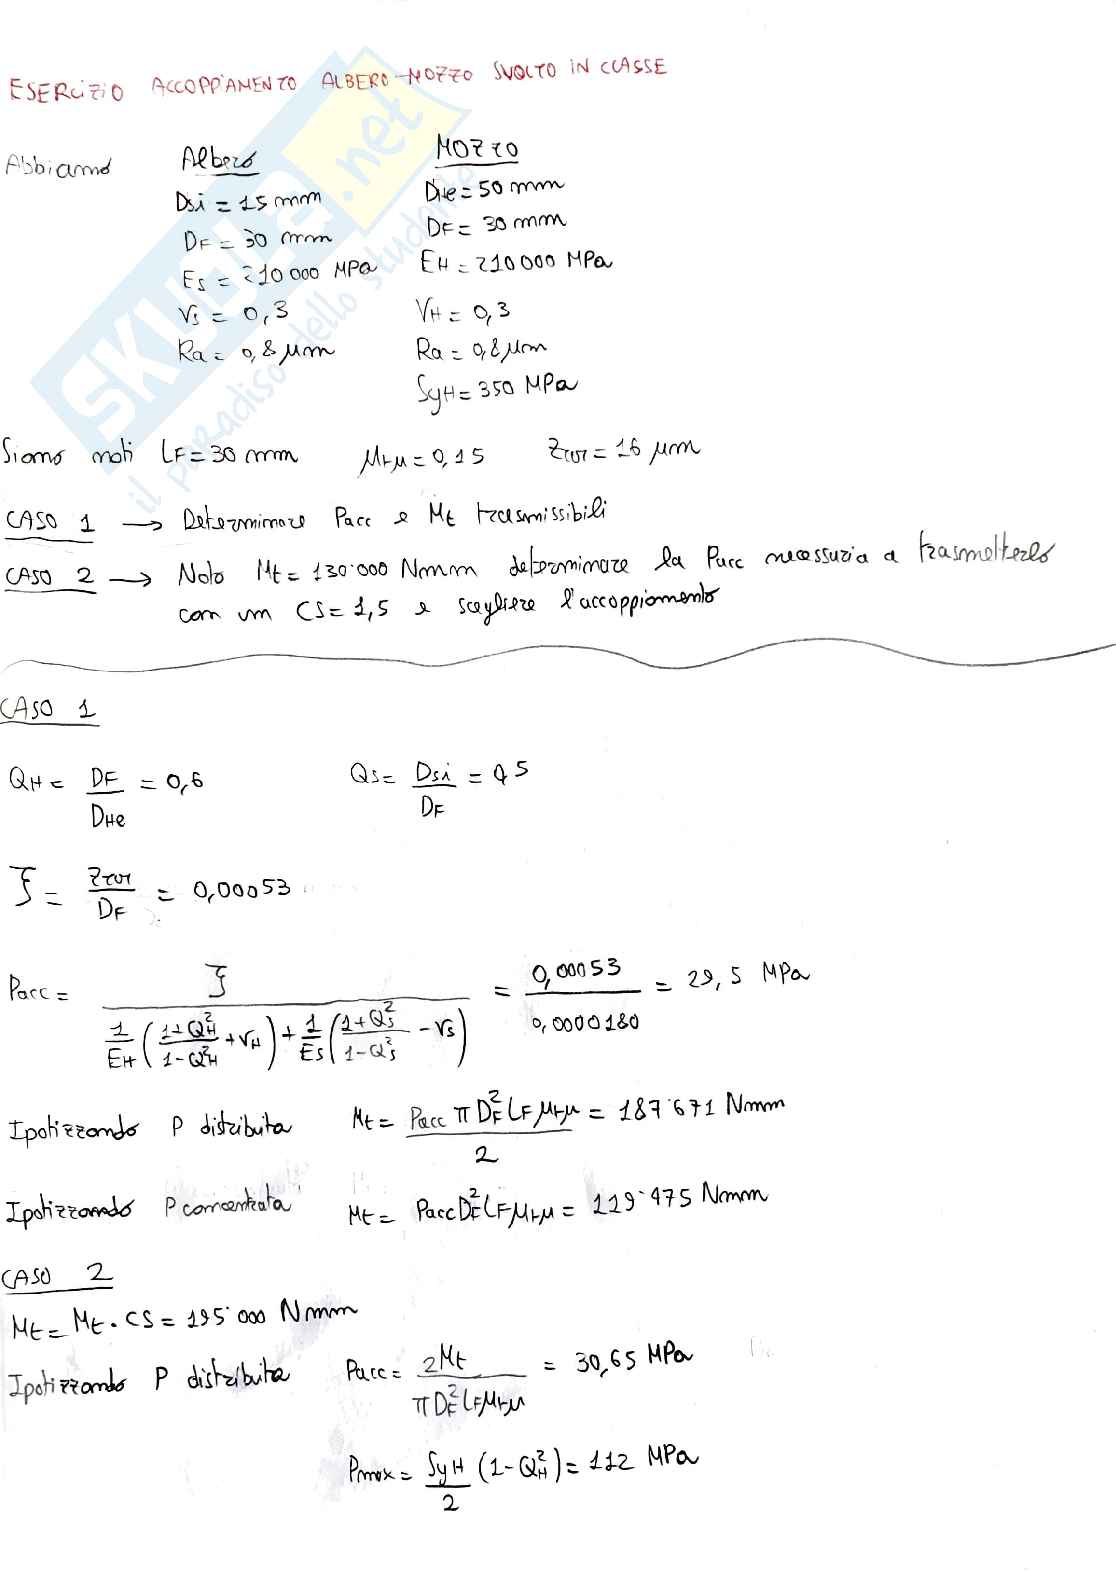 ESERCIZIO ACCOPPIAMENTO ALBERO-MOZZO SVOLTO IN CLASSE
Abbiamo Albero MOZZO
Dsi = 15 mm DHe = 50 mm
DF = 30 mm DF = 30 mm
Es = 210 000 MPa EH = 210 000 MPa
νs = 0,3 νH = 0,3
Ra = 0,8 μm Ra = 0,8 μm
SyH = 350 MPa
Siano noti LF = 30 mm μtμ = 0,15 Ztot = 16 μm
CASO 1 → Determinare Pacc e Mt trasmissibili
CASO 2 → Noto Mt = 130·000 Nmm determinare la Pacc necessaria a trasmetterlo
con un CS = 1,5 e scegliere l'accoppiamento
CASO 1
QH = DF / DHe = 0,6 Qs = Dsi / DF = 0,5
ξ = Ztot / DF = 0,00053
Pacc = ξ / (1/EH ((1+QH²)/(1-QH²) + νH) + 1/Es ((1+Qs²)/(1-Qs²) - νs)) = 0,00053 / 0,0000180 = 29,5 MPa
Ipotizzando P distribuita Mt = Pacc π DF² LF μtμ / 2 = 187·671 Nmm
Ipotizzando P concentrata Mt = Pacc DF² LF μtμ = 119·475 Nmm
CASO 2
Mt = Mt · CS = 195·000 Nmm
Ipotizzando P distribuita Pacc = 2Mt / π DF² LF μtμ = 30,65 MPa
Pmax = SyH / 2 (1-QH²) = 112 MPa
SKUOLA.net
il paradiso dello studente